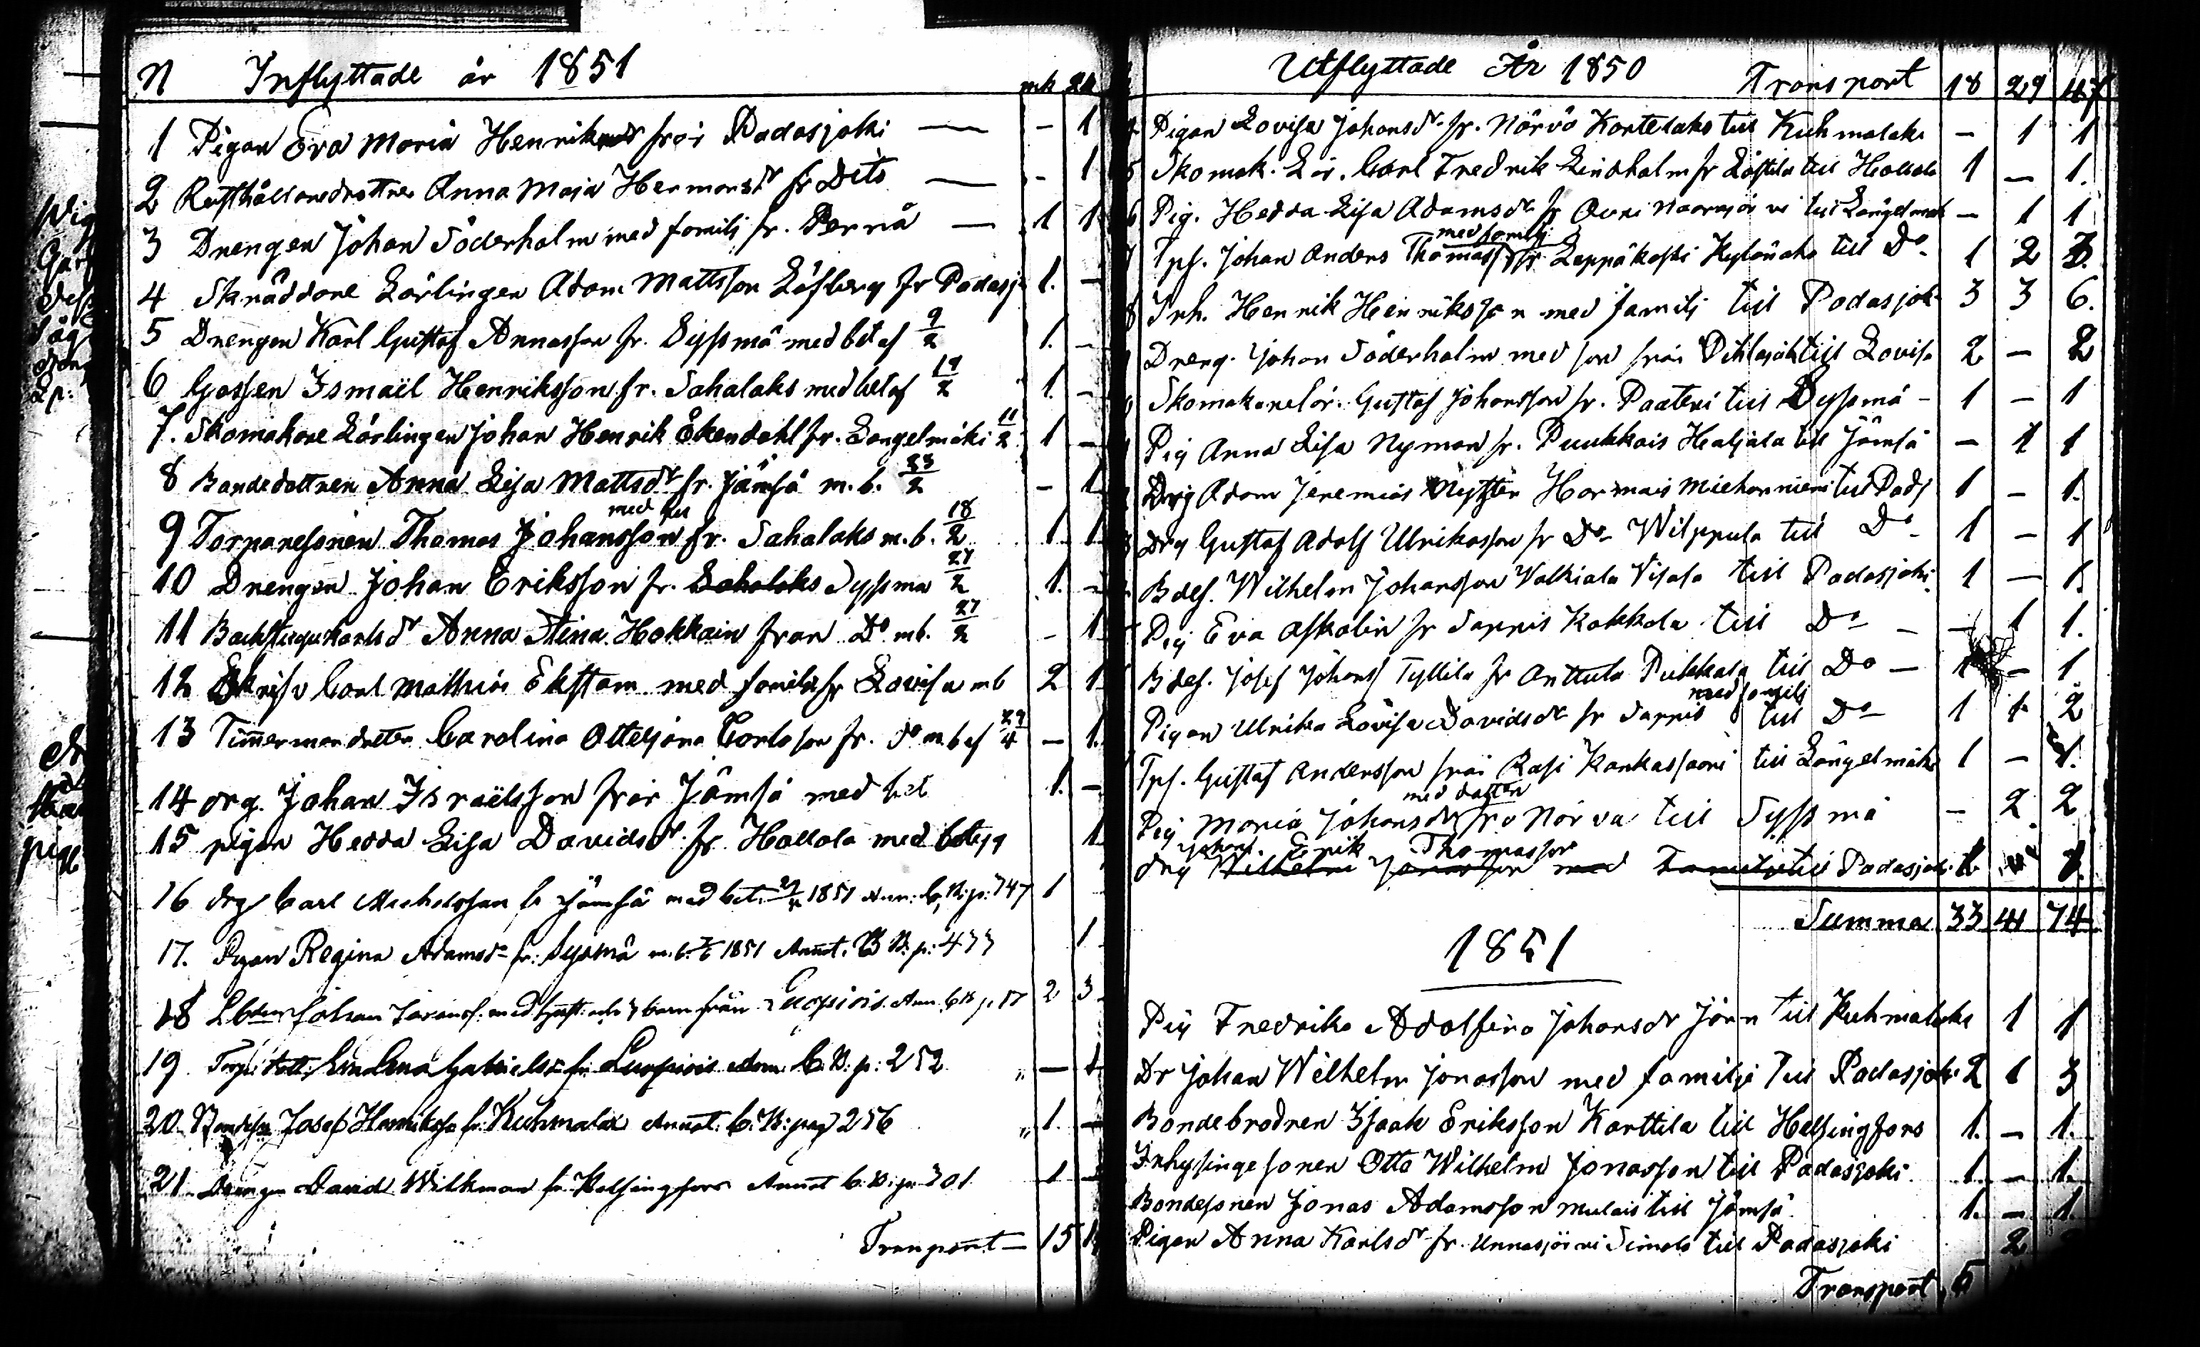 N Inflyttade år 1851 mk qk
1 Pigan Eva Maria Henriksdr från Padasjoki — - 1
2 Rusthållaredottren Anna Maja Hermansdr fr Dito — - 1
3 Drengen Johan Söderholm med familj fr. Pernå — 1 1
4 Skräddare Lärlingen Adam Mattsson Löfberg fr Padasj 1. -
5 Drengen Karl Gustaf Annasson fr. Sysmä med bet af 9/2 1. -
6 Gossen Ismaël Henriksson fr. Sahalaks med bet af 19/2 1. -
7. Skomakare Lärlingen Johan Henrik Åkendahl fr. Längelmäki 11/2 1 -
8 Bondedottren Anna Lisa Mattsdr fr. Jämsä m. b. 23/2 - 1
med
9 Torparesonen Thomas Johansson fr. Sahalaks m. b. 18/2 1 1
10 Drengen Johan Eriksson fr. Sahalaks Sysmä 27/2 1. -
11 Anna Stina Hokkain från Do mb. 27/2 - 1
12 Carl Mathias Ekstam med familj fr Lovisa mb 2 1
13 Timmermandotter Carolina Carlsson fr. do mb af 29/4 — 1.
14 drg. Johan Israëlsson från Jämsä med bet 1. -
15 pigan Hedda Lisa Davidsdr fr. Hollola med 1
16 drg Carl Michelsson fr Jämsä med bet. 1851 Ann: C. B: p: 747 1
17. Pigan Regina Adamsdr fr. Sysmä m. b. 1851 Annot. C B: p: 477 1
18 Johan med hust. och 3 barn från Luopiois Ann. C B p 87 2 3
19 Lena Gabrielsdr fr Luopiois C. B. p: 252 " — 1
20 Josef Henriksson fr. Kuhmalax Annot. C. B: pag 256 " 1. —
21 Drengen David Wilkman fr Helsingfors Annot C. B: p: 301 1
Transport — 15
Utflyttade År 1850 Transport 18 29 47
Pigan Lovisa Johansdr fr. Nårvä Kortelaks till Kuhmalaks — 1 1
Skomak. Lär. Carl Fredrik Lindholm fr till Hollola 1 — 1.
Pig. Hedda Lisa Adamsdr fr till Längelmäk — 1 1
med familj
Tps. Johan Anders Thomass fr Leppäkoski till Do 1 2 3.
Inh. Henrik Henriksson med familj till Padasjok 3 3 6.
Dreng. Johan Söderholm med son från till Lovisa 2 — 2
Skomakarelär. Gustaf Johansson fr. Paateri till Sysmä - 1 — 1
Pig Anna Lisa Nyman fr. Puukkois Haljala till Jämsä — 1 1
Drg Adam Jeremias till Padj 1 — 1.
Drg Gustaf Adolf Ulrikasson fr Do Wilppula till Do 1 — 1
Bdes. Wilhelm Johansson Walkiala till Padasjoki 1 — 1.
Pig Eva Askolin fr Sappis Kokkola till Do — — 1 1.
Bdes. Josef Johans Tyllilä fr Anttula Pukkala till Do — 1 — 1
med familj
Pigan Ulrika Lovisa Davidsdr fr Sappis till Do 1 1 2
Tps. Gustaf Andersson från Rasi till Längelmäki 1 — 1.
med dotter
Pig Maria Johansdr från Nårva till Sysmä — 2 2
Johan Erik Thomasson
drg Wilhelm Jonasson med familj till Padasjoki 1. 1.
Summa 33 41 74
1851
Pig Fredrika Adolfina Johansdr till Kuhmalaks 1 1
Dr Johan Wilhelm Jonasson med familje till Padasjoki 2 1 3
Bondebrodren Isaak Eriksson Karttila till Helsingfors 1. — 1.
Inhysingesonen Otto Wilhelm Jonasson till Padasjoki 1. — 1.
Bondesonen Jonas Adamsson till Jämsä. 1. — 1
Pigan Anna Karlsdr fr. till Padasjoki 2
Transport 5